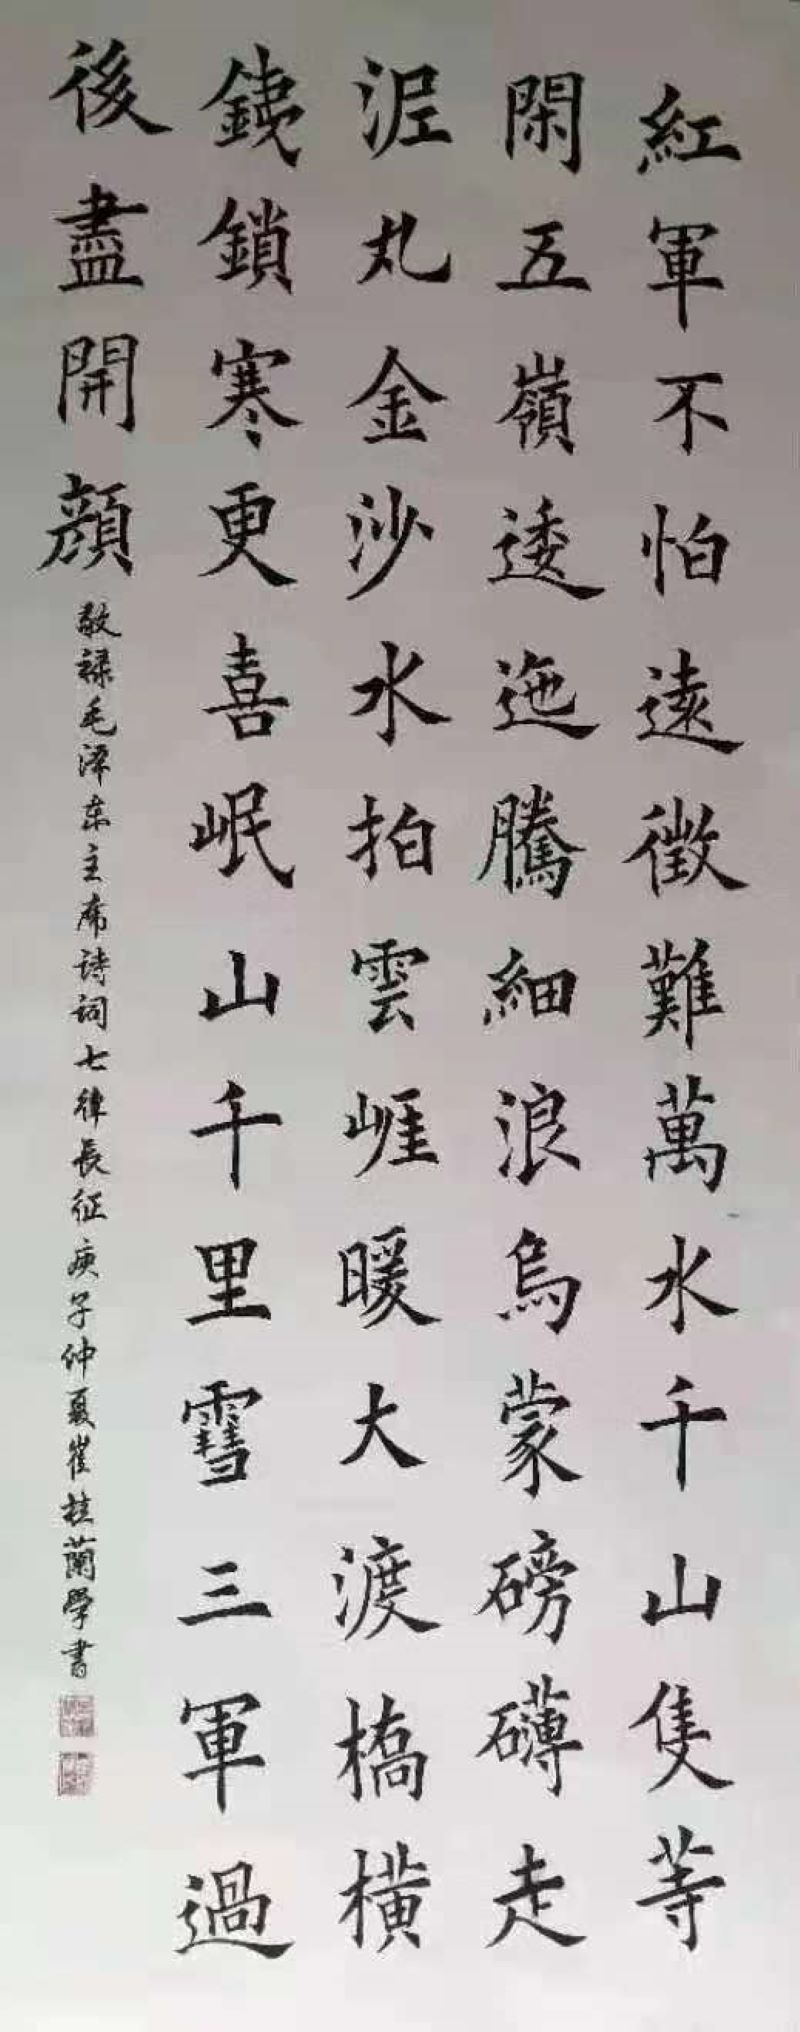 紅軍不怕遠徵難萬水千山隻等
閑五嶺逶迤騰細浪烏蒙磅礴走
泥丸金沙水拍雲崖暖大渡橋橫
鐵鎖寒更喜岷山千里雪三軍過
後盡開顔
敬録毛泽东主席诗词七律長征庚子仲夏崔桂蘭學書